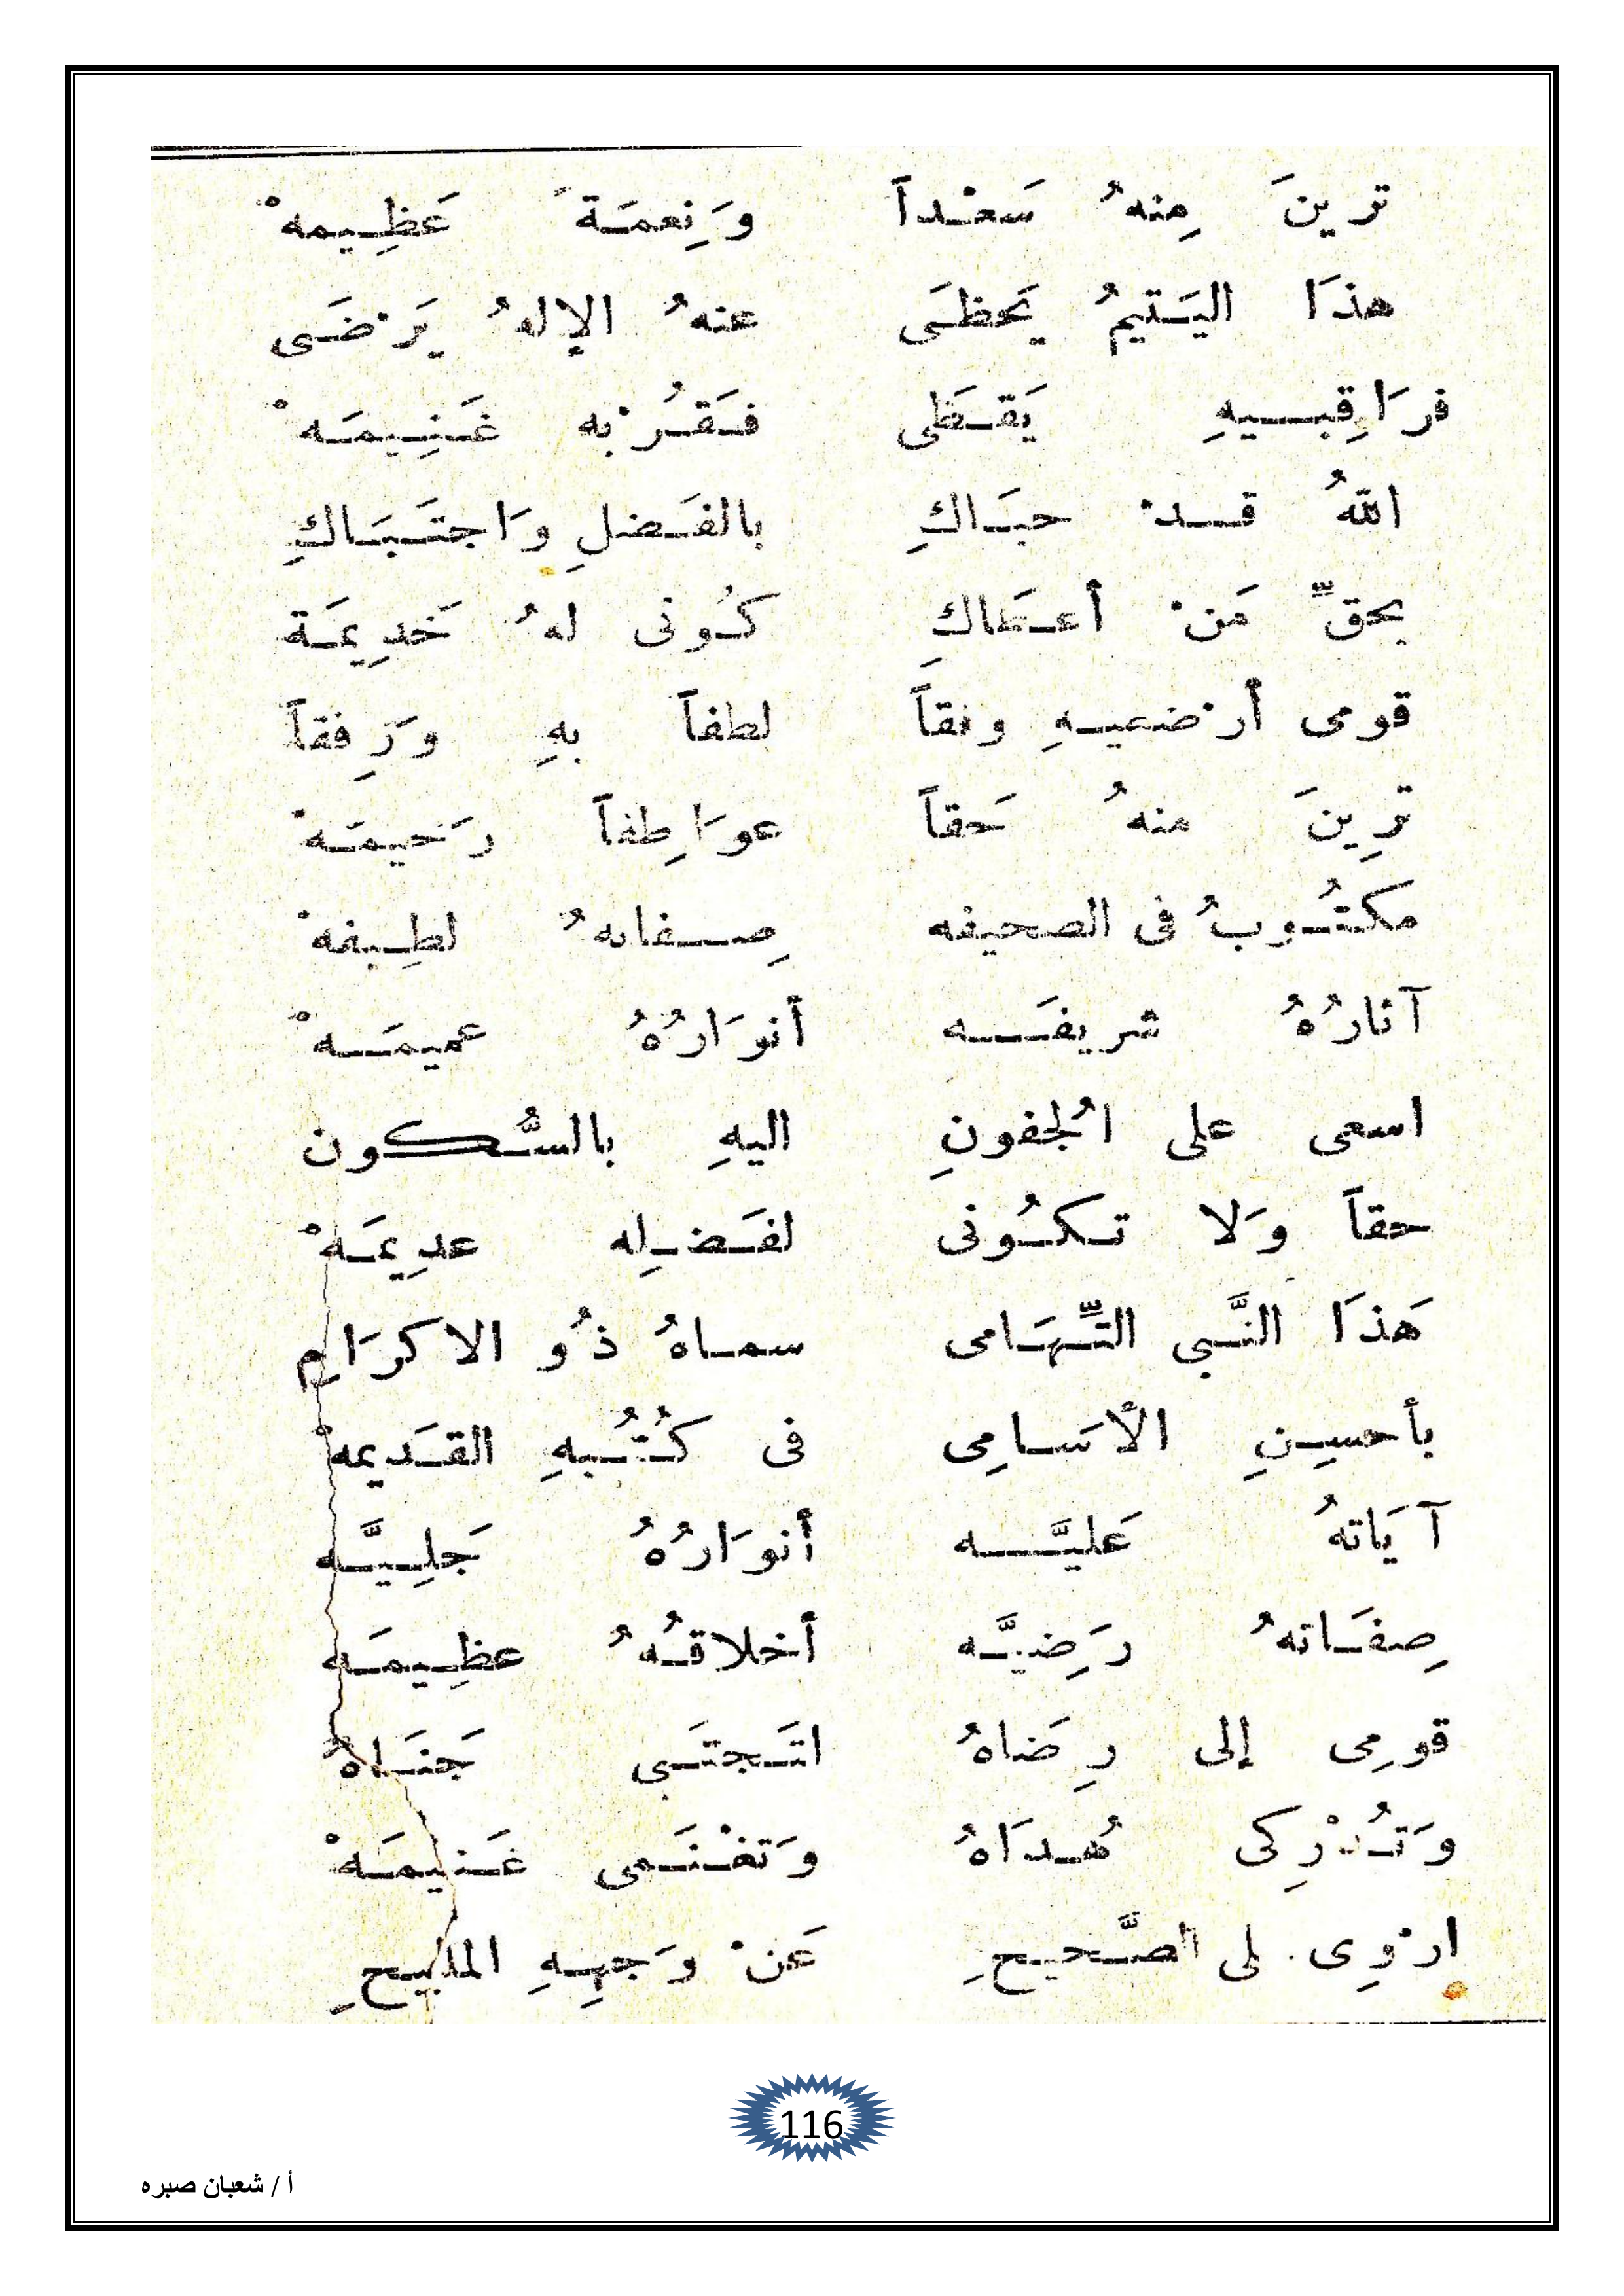 ترينَ مِنهُ سَعْداً وَنِعمَةَ عَظِيمهْ
هذَا اليَتيمُ يَحظَى عنهُ الإلهُ يَرْضَى
فرَاقِبيهِ يَقظَى فقُرْبه غَنِيمَهْ
اللهُ قدْ حبَاكِ بالفَضلِ وَاجتَبَاكِ
بحقِّ مَنْ أعطَاكِ كُونى لهُ خَدِيمَة
قومى أرْضعيهِ وفقاً لطفاً بهِ وَرِفقاً
ترِينَ منهُ حَقاً عوَاطِفاً رَحيمَهْ
مكتُوبُ فى الصحيفه صِفاتهُ لطِيفهْ
آثارُهُ شريفَه أنوَارُهُ عميمَهْ
اسعى على الجُفونِ اليهِ بالسُّكون
حقاً وَلا تكُونى لفَضلِه عدِيمَهْ
هَذَا النَّبى التِّهَامى سماهُ ذُو الاكرَامِ
بأحسِنِ الأسَامِى فى كُتُبهِ القَديمهْ
آيَاتهُ عَليَّه أنوَارُهُ جَلِيَّه
صِفَاتهُ رَضِيَّه أخلاقُهُ عظِيمَه
قومِى إلى رِضَاهُ اتَجتَبى جَنَاهُ
وَتُدْرِكى هُدَاهُ وَتغْنَمى غَنيمَهْ
ارْوِى لى الصَّحيحِ عَنْ وَجهِهِ المليحِ
116
أ / شعبان صبره